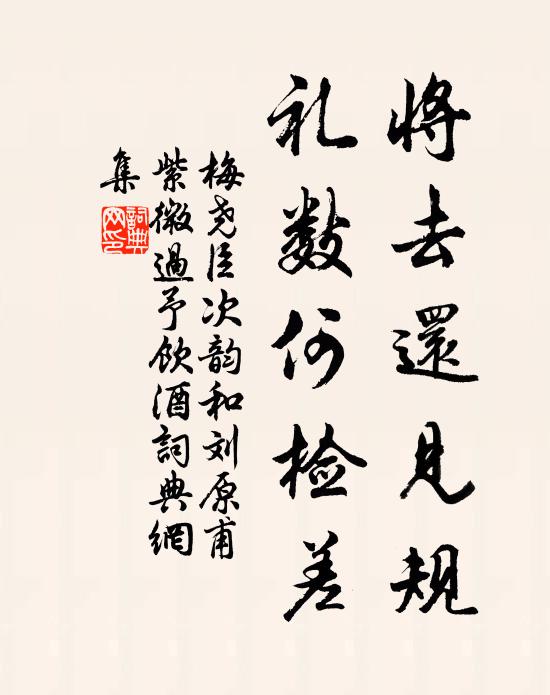 將去還見規
礼数何检差
梅尧臣次韵和刘原甫
紫微過予飲酒詞典網
集
詞典網印